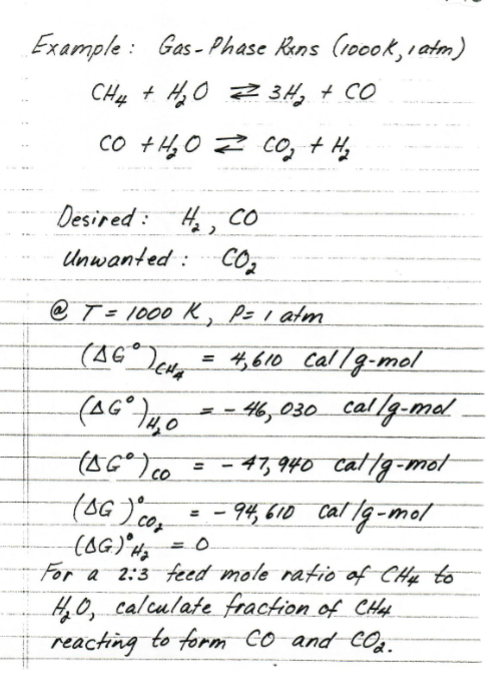 Example : Gas-Phase Rxns (1000K, 1 atm)
CH₄ + H₂O ⇄ 3H₂ + CO
CO + H₂O ⇄ CO₂ + H₂
Desired : H₂, CO
Unwanted : CO₂
@ T = 1000 K, P = 1 atm
(ΔG°)CH₄ = 4,610 cal/g-mol
(ΔG°)H₂O = - 46,030 cal/g-mol
(ΔG°)CO = - 47,940 cal/g-mol
(ΔG)°CO₂ = - 94,610 cal/g-mol
(ΔG)°H₂ = 0
For a 2:3 feed mole ratio of CH₄ to
H₂O, calculate fraction of CH₄
reacting to form CO and CO₂.